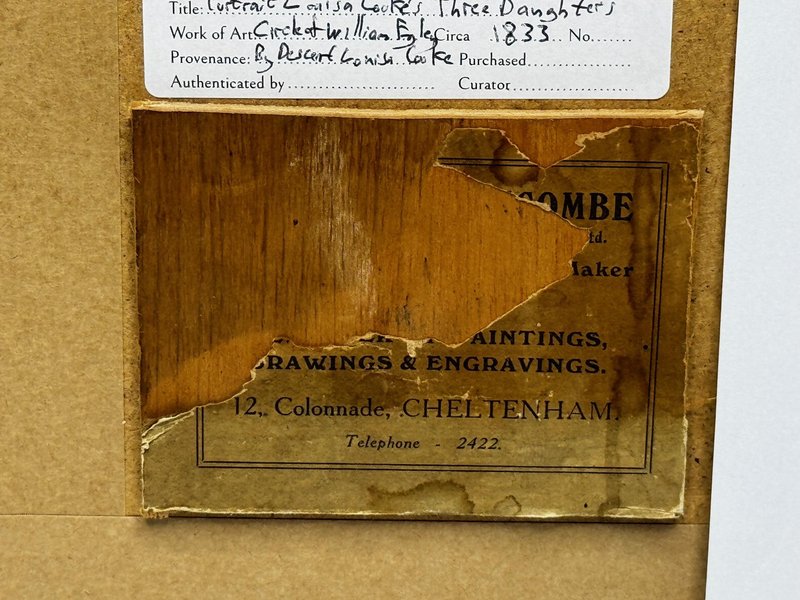 Title: Portrait Louisa Cooke's Three Daughters
Work of Art: Circle of William Egley Circa 1833 No.
Provenance: By Descent Louisa Cooke Purchased
Authenticated by Curator
COMBE
td.
aker
AINTINGS,
RAWINGS & ENGRAVINGS.
12, Colonnade, CHELTENHAM.
Telephone - 2422.